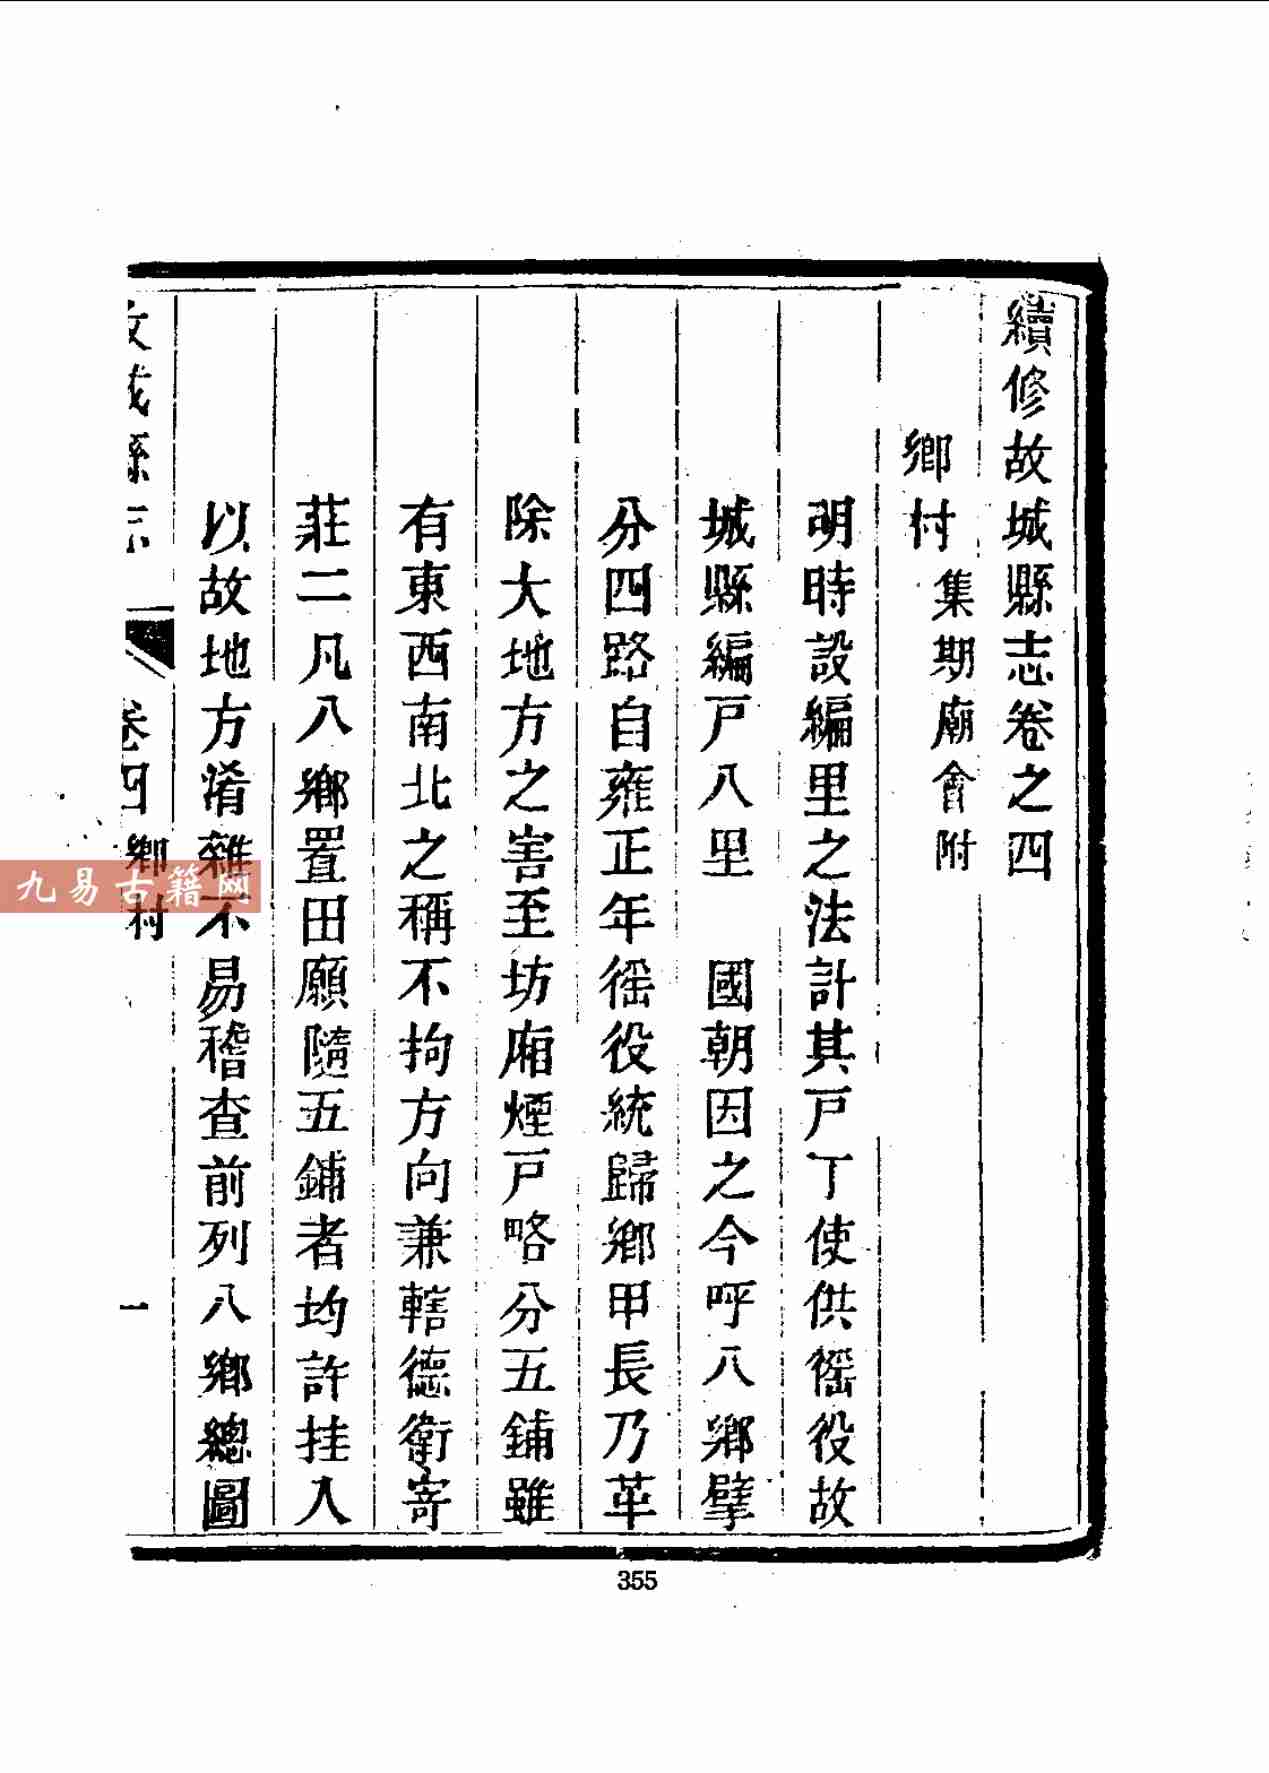 續修故城縣志卷之四
鄉村集期廟會附
明時設編里之法計其戸丁使供徭役故
城縣編戸八里　國朝因之今呼八鄉擘
分四路自雍正年徭役統歸鄉甲長乃革
除大地方之害至坊廂煙戸略分五鋪雖
有東西南北之稱不拘方向兼轄德衛寄
莊二凡八鄉置田願隨五鋪者均許挂入
以故地方淆雜不易稽查前列八鄉總圖
故城縣志　卷四鄉村　一
九易古籍网
355